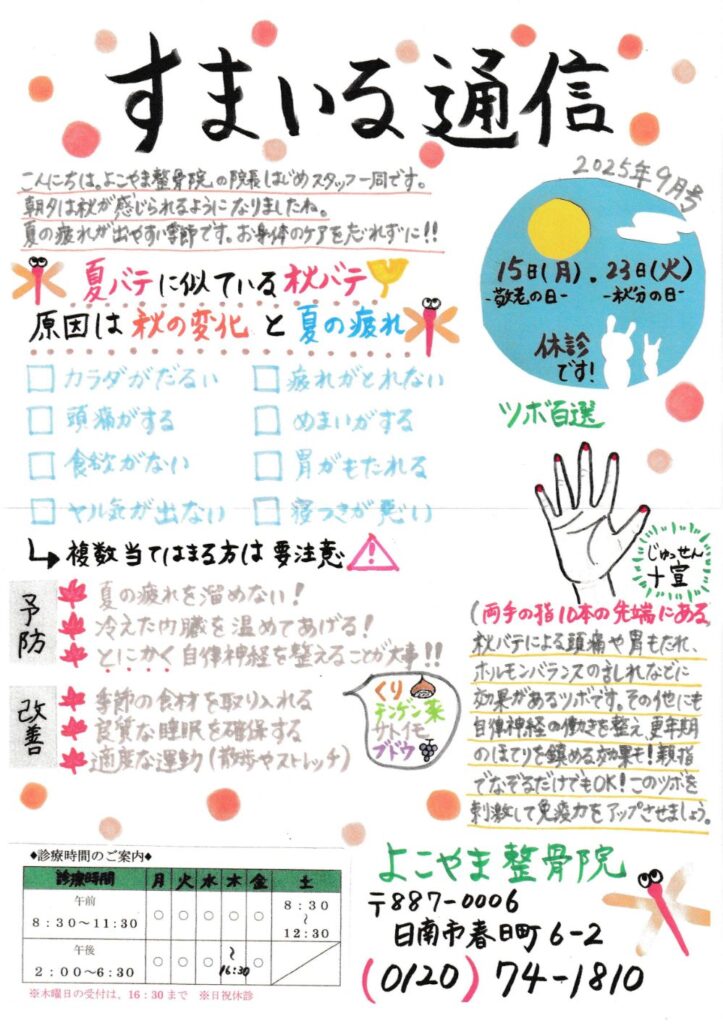 すまいる通信
2025年9月号
こんにちは。よこやま整骨院の院長はじめスタッフ一同です。
朝夕は秋が感じられるようになりましたね。
夏の疲れが出やすい季節です。お身体のケアを忘れずに!!
15日(月)・23日(火)
-敬老の日- -秋分の日-
休診
です!
夏バテに似ている秋バテ
原因は秋の変化と夏の疲れ
カラダがだるい
疲れがとれない
頭痛がする
めまいがする
食欲がない
胃がもたれる
ヤル気が出ない
寝つきが悪い
複数当てはまる方は要注意
予防
夏の疲れを溜めない!
冷えた内臓を温めてあげる!
とにかく自律神経を整えることが大事!!
改善
季節の食材を取り入れる
良質な睡眠を確保する
適度な運動(散歩やストレッチ)
くり
チンゲン菜
サトイモ
ブドウ
ツボ百選
じゅっせん
十宣
(両手の指10本の先端にある)
秋バテによる頭痛や胃もたれ、
ホルモンバランスの乱れなどに
効果があるツボです。その他にも
自律神経の働きを整え、更年期
のほてりを鎮める効果も!親指
でなぞるだけでもOK!このツボを
刺激して免疫力をアップさせましょう。
◆診療時間のご案内◆
診療時間 月 火 水 木 金 土
午前
8:30~11:30 ○ ○ ○ ○ ○ 8:30~12:30
午後
2:00~6:30 ○ ○ ○ ~16:30 ○
※木曜日の受付は、16:30まで ※日祝休診
よこやま整骨院
〒887-0006
日南市春日町6-2
(0120)74-1810